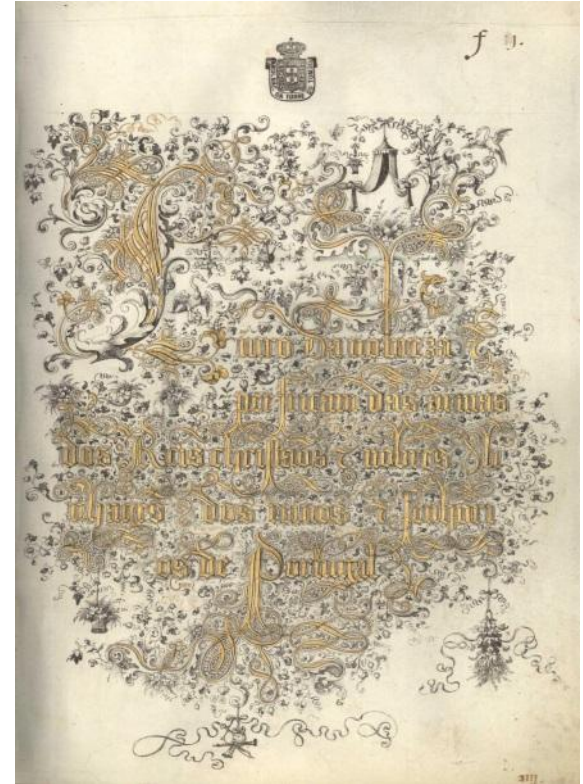 f 1.
Liuro da nobreza E
perfeicam das armas
dos Reis christãos & nobres li
nhages dos reinos & senhori
os de Portugal